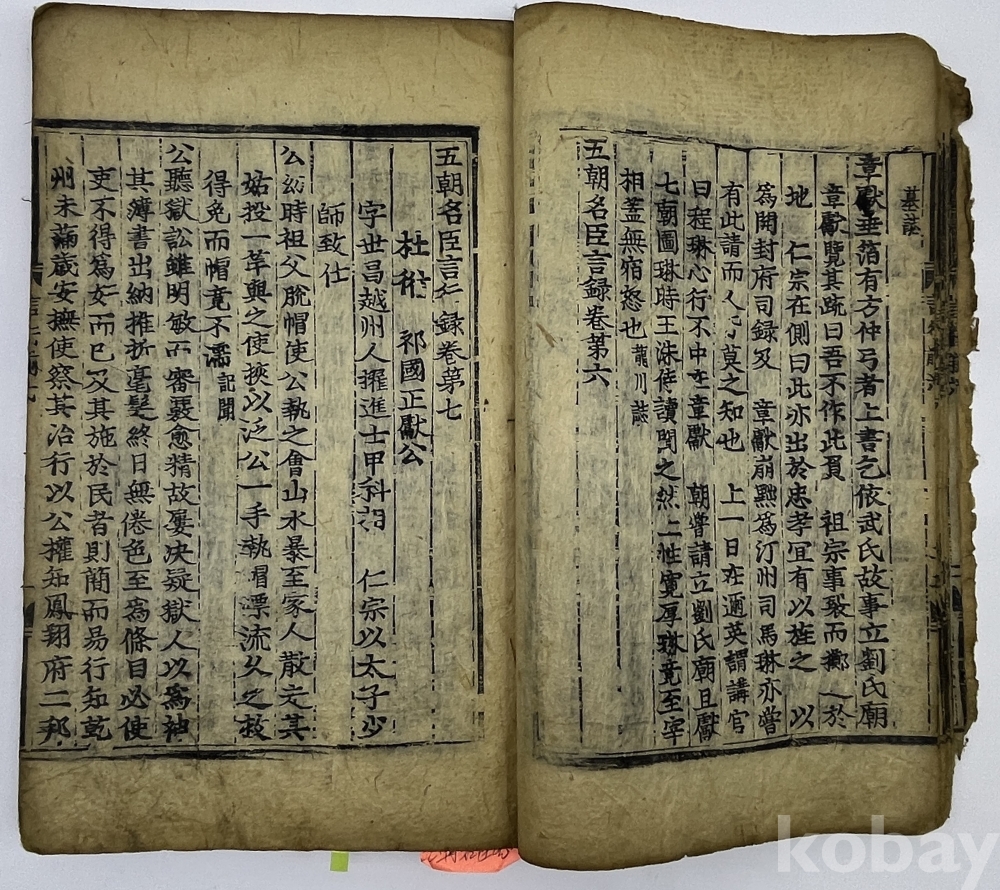 墓誌
章獻垂箔有方仲弓者上書乞依武氏故事立劉氏廟
章獻覽其䟽曰吾不作此負 祖宗事裂而擲 於
地 仁宗在側曰此亦出於忠孝宜有以旌之 以
爲開封府司録及 章獻崩黜爲汀州司馬琳亦嘗
有此請而人 莫之知也 上一日在邇英謂講官
曰程琳心行不中在章獻 朝嘗請立劉氏廟且獻
七朝圖琳時王洙侍讀聞之然 性寛厚琳竟至宰
相蓋無宿怒也 龍川誌
五朝名臣言録卷第六
五朝名臣言行録卷第七
杜衍 祁國正獻公
字世昌越州人擢進士甲科相 仁宗以太子少
師致仕
公幼時祖父脫帽使公執之會山水暴至家人散走其
姑投一竿與之使挾以泛公一手執帽漂流久之救
得免而帽竟不濡 記聞
公聽獄訟雖明敏而審覈愈精故屢决疑獄人以爲神
其簿書出納推折毫髮終日無倦色至爲條目必使
吏不得爲奸而已及其施於民者則簡而易行知乾
州未滿歳安撫使察其治行以公權知鳳翔府二邦
kobay